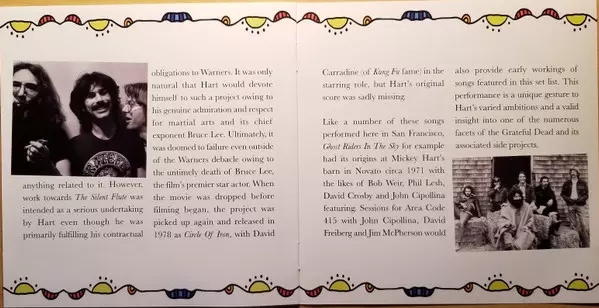 anything related to it. However,
work towards The Silent Flute was
intended as a serious undertaking
by Hart even though he was
primarily fulfilling his contractual
obligations to Warners. It was only
natural that Hart would devote
himself to such a project owing to
his genuine admiration and respect
for martial arts and its chief
exponent Bruce Lee. Ultimately, it
was doomed to failure even outside
of the Warners debacle owing to
the untimely death of Bruce Lee,
the film's premier star actor. When
the movie was dropped before
filming began, the project was
picked up again and released in
1978 as Circle Of Iron, with David
Carradine (of Kung Fu fame) in the
starring role, but Hart's original
score was sadly missing.
Like a number of these songs
performed here in San Francisco,
Ghost Riders In The Sky for example
had its origins at Mickey Hart's
barn in Novato circa 1971 with
the likes of Bob Weir, Phil Lesh,
David Crosby and John Cipollina
featuring. Sessions for Area Code
415 with John Cipollina, David
Freiberg and Jim McPherson would
also provide early workings of
songs featured in this set list. This
performance is a unique gesture to
Hart's varied ambitions and a valid
insight into one of the numerous
facets of the Grateful Dead and its
associated side projects.